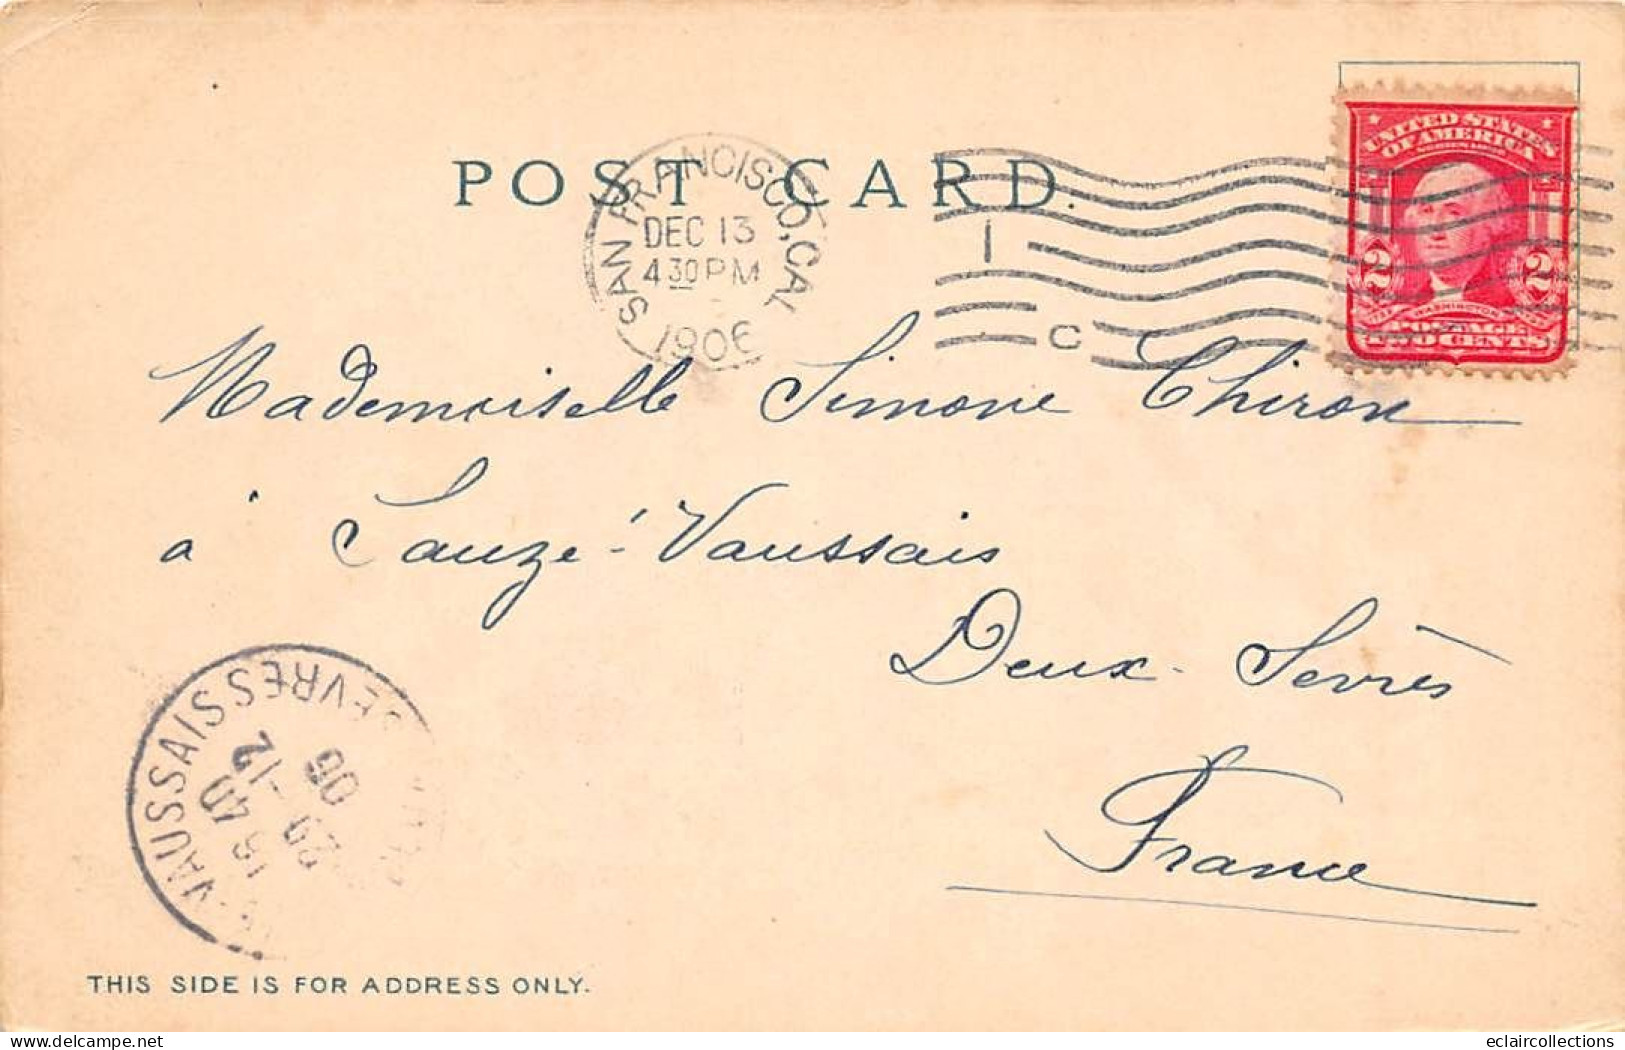 POST CARD.
SAN FRANCISCO, CAL
DEC 13
4 30 PM
1906
1
C
UNITED STATES
OF AMERICA
2 2
WASHINGTON
POSTAGE
TWO CENTS
Mademoiselle Simone Chiron
à Sauzé-Vaussais
Deux-Sèvres
France
VAUSSAIS SEVRES
16 40
29 -12
06
THIS SIDE IS FOR ADDRESS ONLY.
eclaircollections